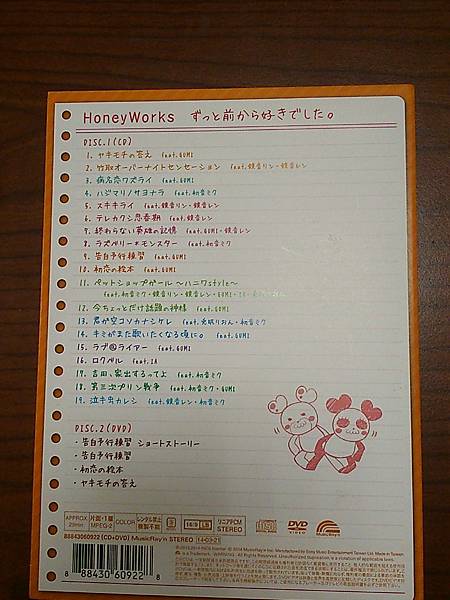 HoneyWorks ずっと前から好きでした。
DISC.1(CD)
1. ヤキモチの答え feat.GUMI
2. 竹取オーバーナイトセンセーション feat.鏡音リン・鏡音レン
3. 病名恋ワズライ feat.GUMI
4. ハジマリノサヨナラ feat.初音ミク
5. スキキライ feat.鏡音リン・鏡音レン
6. テレカクシ思春期 feat.鏡音レン
7. 終わらない英雄の記憶 feat.GUMI・鏡音レン
8. ラズベリー*モンスター feat.初音ミク
9. 告白予行練習 feat.GUMI
10. 初恋の絵本 feat.GUMI
11. ペットショップガール ~ハニワstyle~
feat.初音ミク・鏡音リン・鏡音レン・GUMI・IA・
12. 今ちょっとだけ話題の神様 feat.GUMI
13. 君が空コソカナシケレ feat.兎眠りおん・初音ミク
14. キミがまた歌いたくなる頃に。 feat.GUMI
15. ラブ@ライアー feat.GUMI
16. ロクベル feat.IA
17. 吉田、家出するってよ feat.初音ミク
18. 第三次プリン戦争 feat.初音ミク・GUMI
19. 泣キ虫カレシ feat.鏡音レン・初音ミク
DISC.2(DVD)
・告白予行練習 ショートストーリー
・告白予行練習
・初恋の絵本
・ヤキモチの答え
APPROX. 29min. 片面・1層 MPEG-2 COLOR レンタル禁止 複製不能 16:9 LB リニアPCM STEREO DVD VIDEO MusicRay'n
88843060922 (CD+DVD) MusicRay'n STEREO 14・03・21
8 88430 60922 8